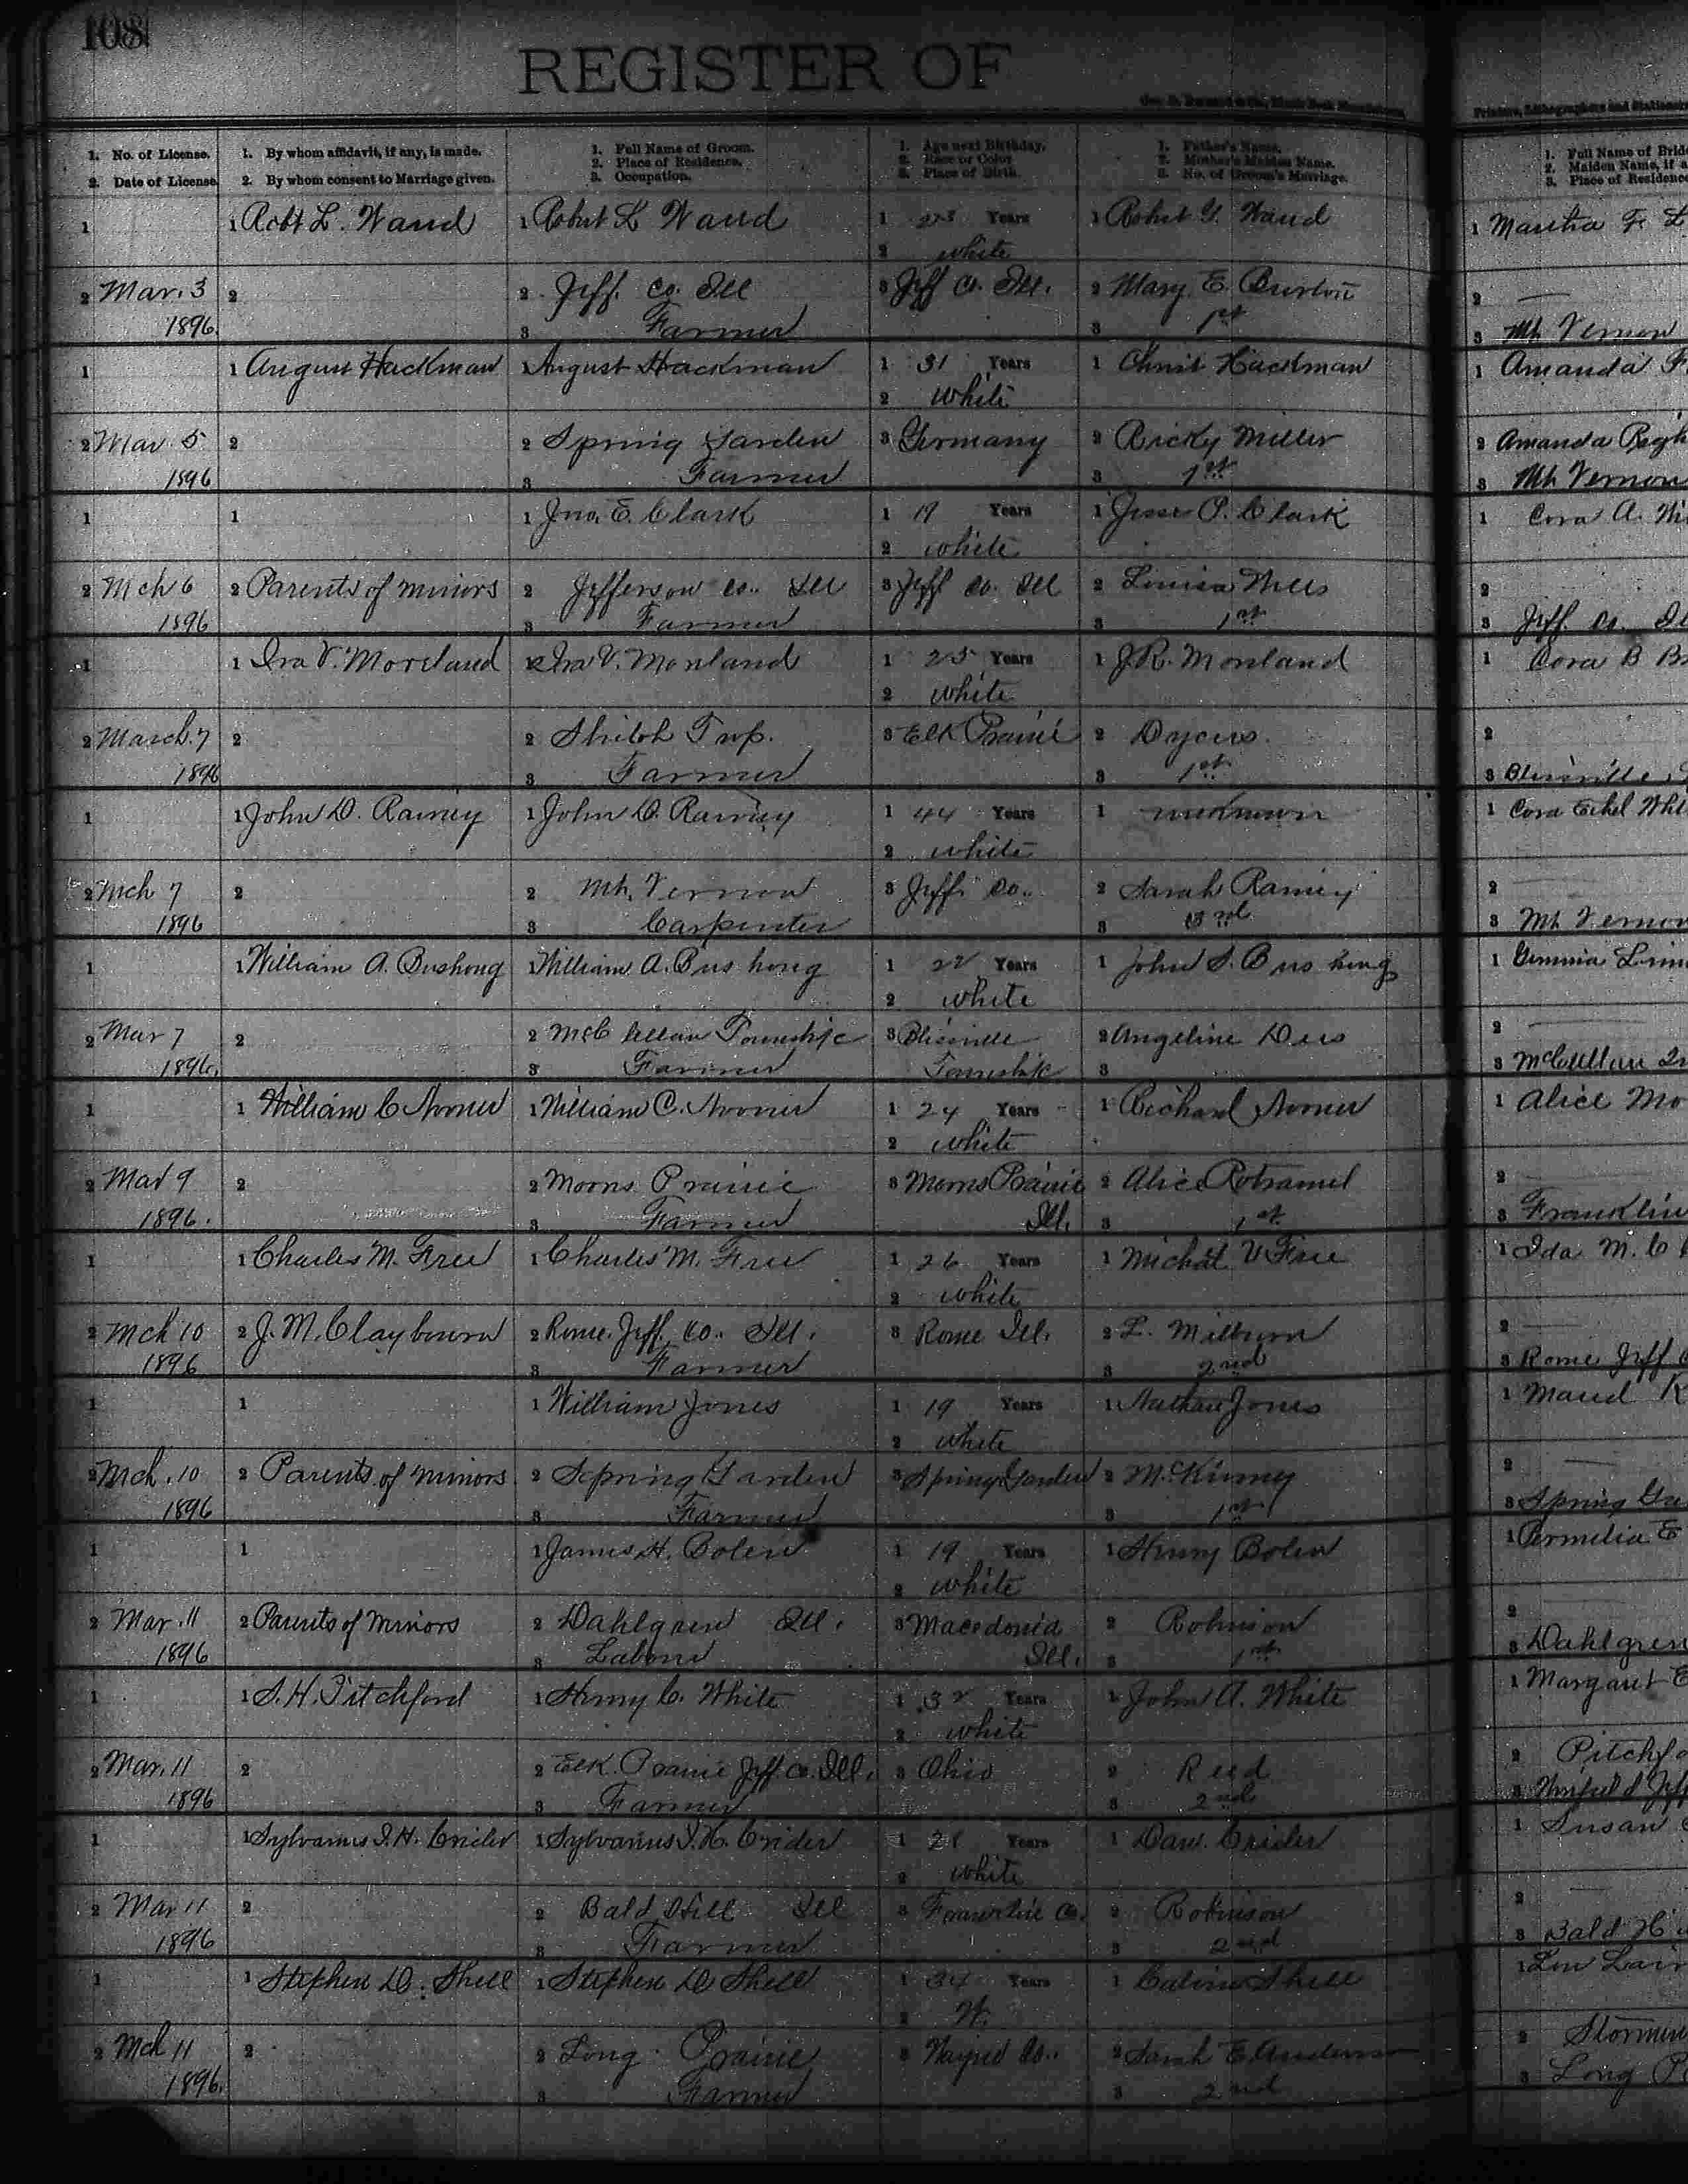 108
REGISTER OF
1. No. of License.
2. Date of License.
1. By whom affidavit, if any, is made.
2. By whom consent to Marriage given.
1. Full Name of Groom.
2. Place of Residence.
3. Occupation.
1. Age next Birthday.
2. Race or Color
3. Place of Birth.
1. Father's Name.
2. Mother's Maiden Name.
3. No. of Groom's Marriage.
Printers, Lithographers and Stationers
1. Full Name of Bride
2. Maiden Name, if a
3. Place of Residence
1 1 Robt L. Waud 1 Robert L Waud 1 23 Years 1 Robert Y. Waud 1 Martha F. L
2 white
2 Mar. 3 2 2 Jeff. Co. Ill 3 Jeff Co. Ill. 2 Mary E. Burton 2 —
1896 3 Farmer 3 1st 3 Mt Vernon
1 1 August Hackman 1 August Hackman 1 31 Years 1 Christ Hackman 1 Amanda F
2 White
2 Mar 5 2 2 Spring Garden 3 Germany 2 Ricky Miller 2 Amanda
1896 3 Farmer 3 1st 3 Mt Vernon
1 1 1 Jno. E. Clark 1 19 Years 1 Jesse P. Clark 1 Cora A.
2 white
2 Mch 6 2 Parents of minors 2 Jefferson Co. Ill 3 Jeff Co. Ill 2 Louisa 2
1896 3 Farmer 3 1st 3 Jeff Co. Il
1 1 Ira V. Moreland 1 Ira V. Moreland 1 25 Years 1 J.R. Moreland 1 Cora B
2 white
2 March 7 2 2 Shiloh Twp. 3 Elk Prairie 2 2
1896 3 Farmer 3 1st 3 Blissville
1 1 John D. Rainey 1 John D. Rainey 1 44 Years 1 unknown 1 Cora Ethel
2 white
2 Mch 7 2 2 Mt. Vernon 3 Jeff Co. 2 Sarah Rainey 2
1896 3 Carpenter 3 3rd 3 Mt Vernon
1 1 William A. Bushong 1 William A. Bushong 1 22 Years 1 John S. Bushong 1
2 white
2 Mar 7 2 2 McClellan Township 3 Blissville 2 Angeline Dees 2
1896. 3 Farmer Township 3 3 McClellan
1 1 William C 1 William C. 1 24 Years 1 Richard 1 Alice Mo
2 white
2 Mar 9 2 2 Moores Prairie 3 Moores Prairie 2 Alice Rotramel 2
1896. 3 Farmer Ill. 3 1st 3 Franklin
1 1 Charles M. Free 1 Charles M. Free 1 26 Years 1 Michal V Free 1 Ida M. C
2 white
2 Mch 10 2 J. M. Claybourn 2 Rome. Jeff. Co. Ill. 3 Rome Ill. 2 L. Milburn 2
1896 3 Farmer 3 2nd 3 Rome Jeff
1 1 1 William Jones 1 19 Years 1 Nathan Jones 1 Maud
2 white
2 Mch. 10 2 Parents of minors 2 Spring Garden 3 Spring Garden 2 McKinney 2
1896 3 Farmer 3 1st 3 Spring Ga
1 1 1 James H. Bolen 1 19 Years 1 Henry Bolen 1 Permelia E
2 white
2 Mar. 11 2 Parents of Minors 2 Dahlgren Ill. 3 Macedonia 2 Robinson 2
1896 3 Laborer Ill. 3 1st 3 Dahlgren
1 1 S. H. Pitchford 1 Henry C. White 1 32 Years 1 John A. White 1 Margaret E
2 white
2 Mar. 11 2 2 Elk Prairie Jeff. Co. Ill. 3 Ohio 2 Reed 2 Pitchfo
1896 3 Farmer 3 2nd 3
1 1 Sylvanus I. H. Crider 1 Sylvanus I. H. Crider 1 21 Years 1 Crider 1 Susan
2 white
2 Mar 11 2 2 Bald Hill Ill 3 Franklin Co. 2 Robinson 2 —
1896 3 Farmer 3 2nd 3 Bald H
1 1 Stephen D. Shell 1 Stephen D Shell 1 34 Years 1 Calvin Shell 1
2 W.
2 Mch 11 2 2 Long Prairie 3 Wayne Co. 2 Sarah E. Anderson 2
1896. 3 Farmer 3 2nd 3 Long P